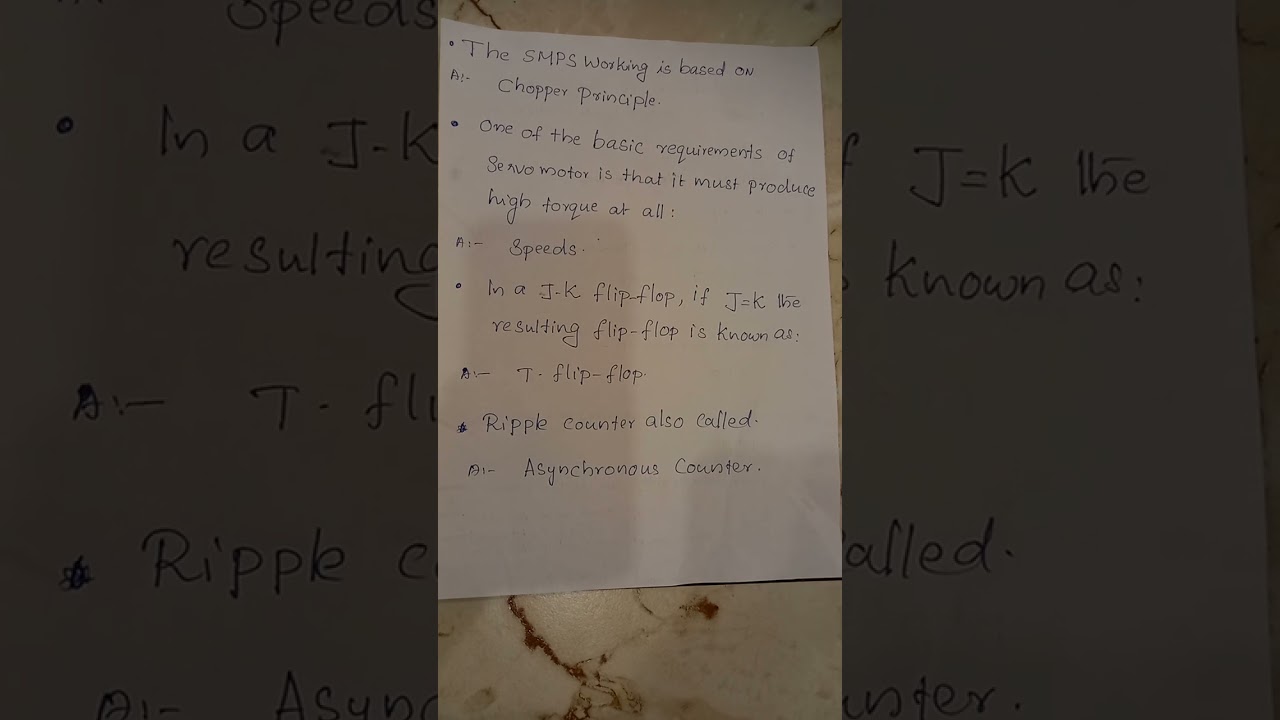 • The SMPS Working is based ON
A:- Chopper Principle.
• One of the basic requirements of
Servo motor is that it must produce
high torque at all:
A:- Speeds.
• In a J-K flip-flop, if J=K the
resulting flip-flop is known as:
A:- T- flip-flop.
* Ripple counter also called.
A:- Asynchronous Counter.